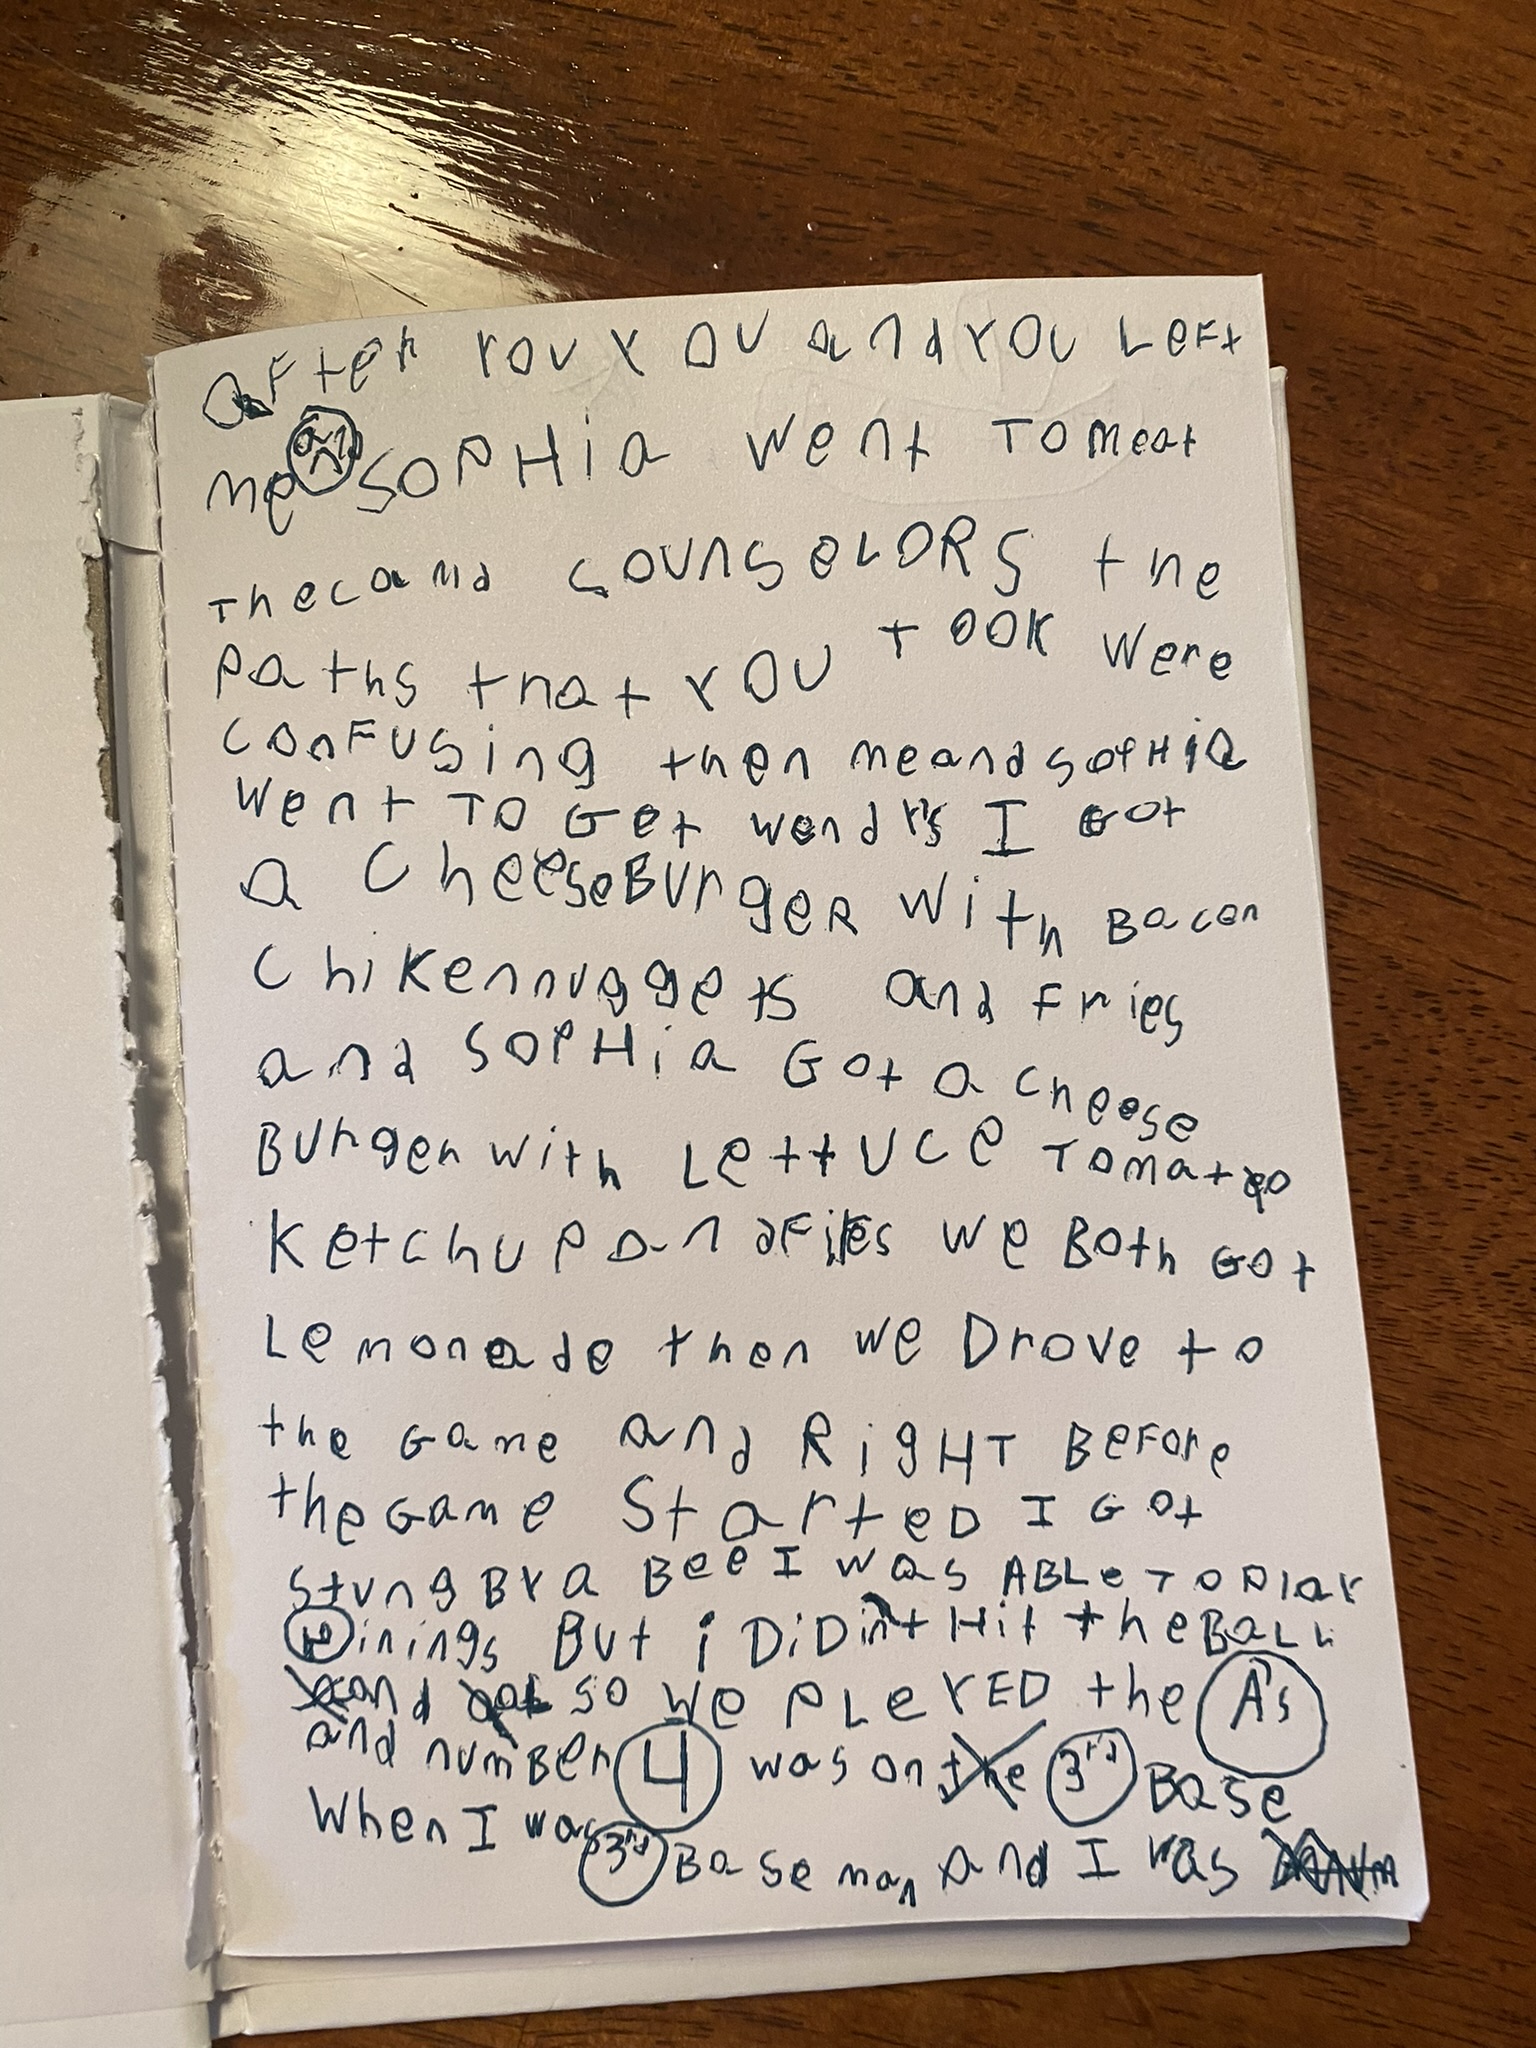 after you you and you Left
me and SOPHia went To meat
The camd counseLORS the
Paths that you took were
conFusing then me and sophia
went To Get wendy's I Got
a CheeseBurger with Bacon
Chikennuggets and Fries
and SoPHia Got a cheese
Burger with Lettuce Tomato
Ketchup and Fries we Both Got
Lemonade then we Drove to
the Game and RigHT BeFore
the Game StarteD I Got
stung By a Bee I was ABLe To Play
inings But i DiDint Hit the BaLL
and so we PLeyED the A's
and numBer 4 was on 3rd Base
When I was 3rd Base man and I was